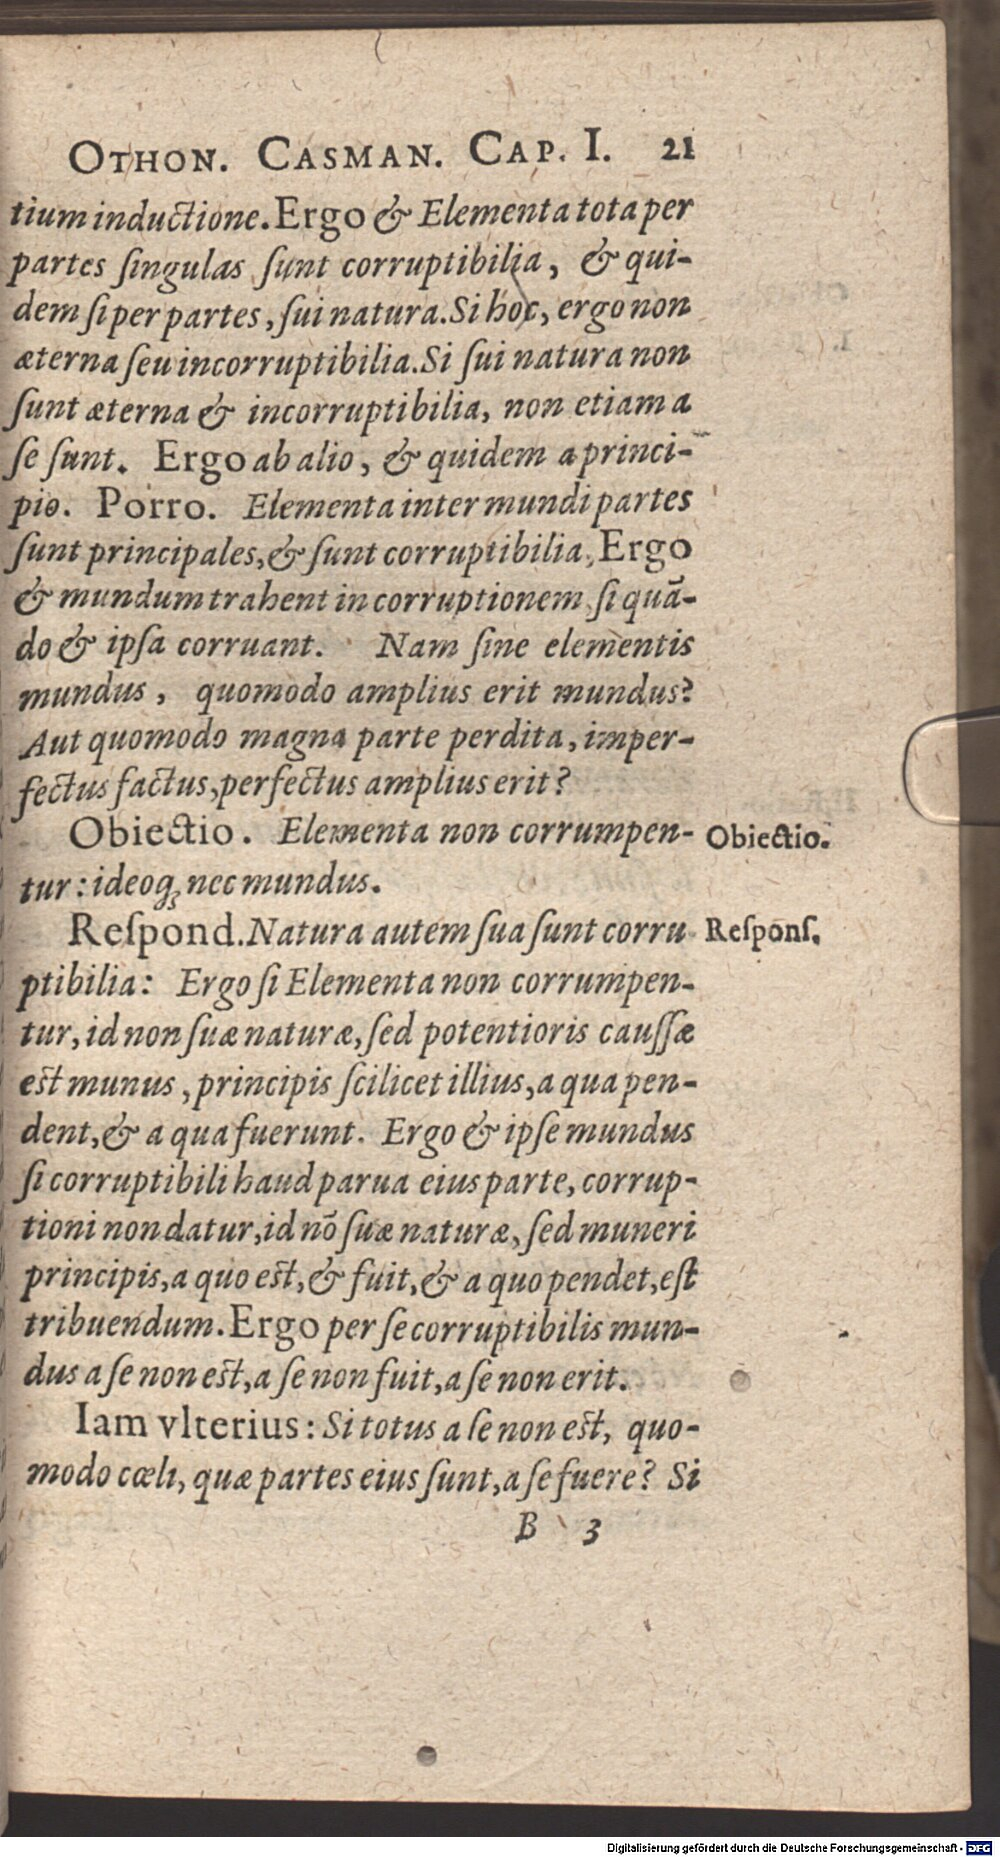 OTHON. CASMAN. CAP. I. 21
tium inductione. Ergo & Elementa tota per
partes ſingulas ſunt corruptibilia, & qui-
dem ſi per partes, ſui natura. Si hoc, ergo non
æterna ſeu incorruptibilia. Si ſui natura non
ſunt æterna & incorruptibilia, non etiam a
ſe ſunt. Ergo ab alio, & quidem a princi-
pio. Porro. Elementa inter mundi partes
ſunt principales, & ſunt corruptibilia, Ergo
& mundum trahent in corruptionem ſi quã-
do & ipſa corruant. Nam ſine elementis
mundus, quomodo amplius erit mundus?
Aut quomodo magna parte perdita, imper-
fectus factus, perfectus amplius erit?
Obiectio. Elementa non corrumpen-
tur: ideoq; nec mundus.
Obiectio.
Reſpond. Natura autem ſua ſunt corru
ptibilia: Ergo ſi Elementa non corrumpen-
tur, id non ſuæ naturæ, ſed potentioris cauſſæ
eſt munus, principis ſcilicet illius, a qua pen-
dent, & a qua fuerunt. Ergo & ipſe mundus
ſi corruptibili haud parua eius parte, corrup-
tioni non datur, id nõ ſuæ naturæ, ſed muneri
principis, a quo eſt, & fuit, & a quo pendet, eſt
tribuendum. Ergo per ſe corruptibilis mun-
dus a ſe non eſt, a ſe non fuit, a ſe non erit.
Reſponſ.
Iam vlterius: Si totus a ſe non eſt, quo-
modo cœli, quæ partes eius ſunt, a ſe fuere? Si
B 3
Digitalisierung gefördert durch die Deutsche Forschungsgemeinschaft - DFG